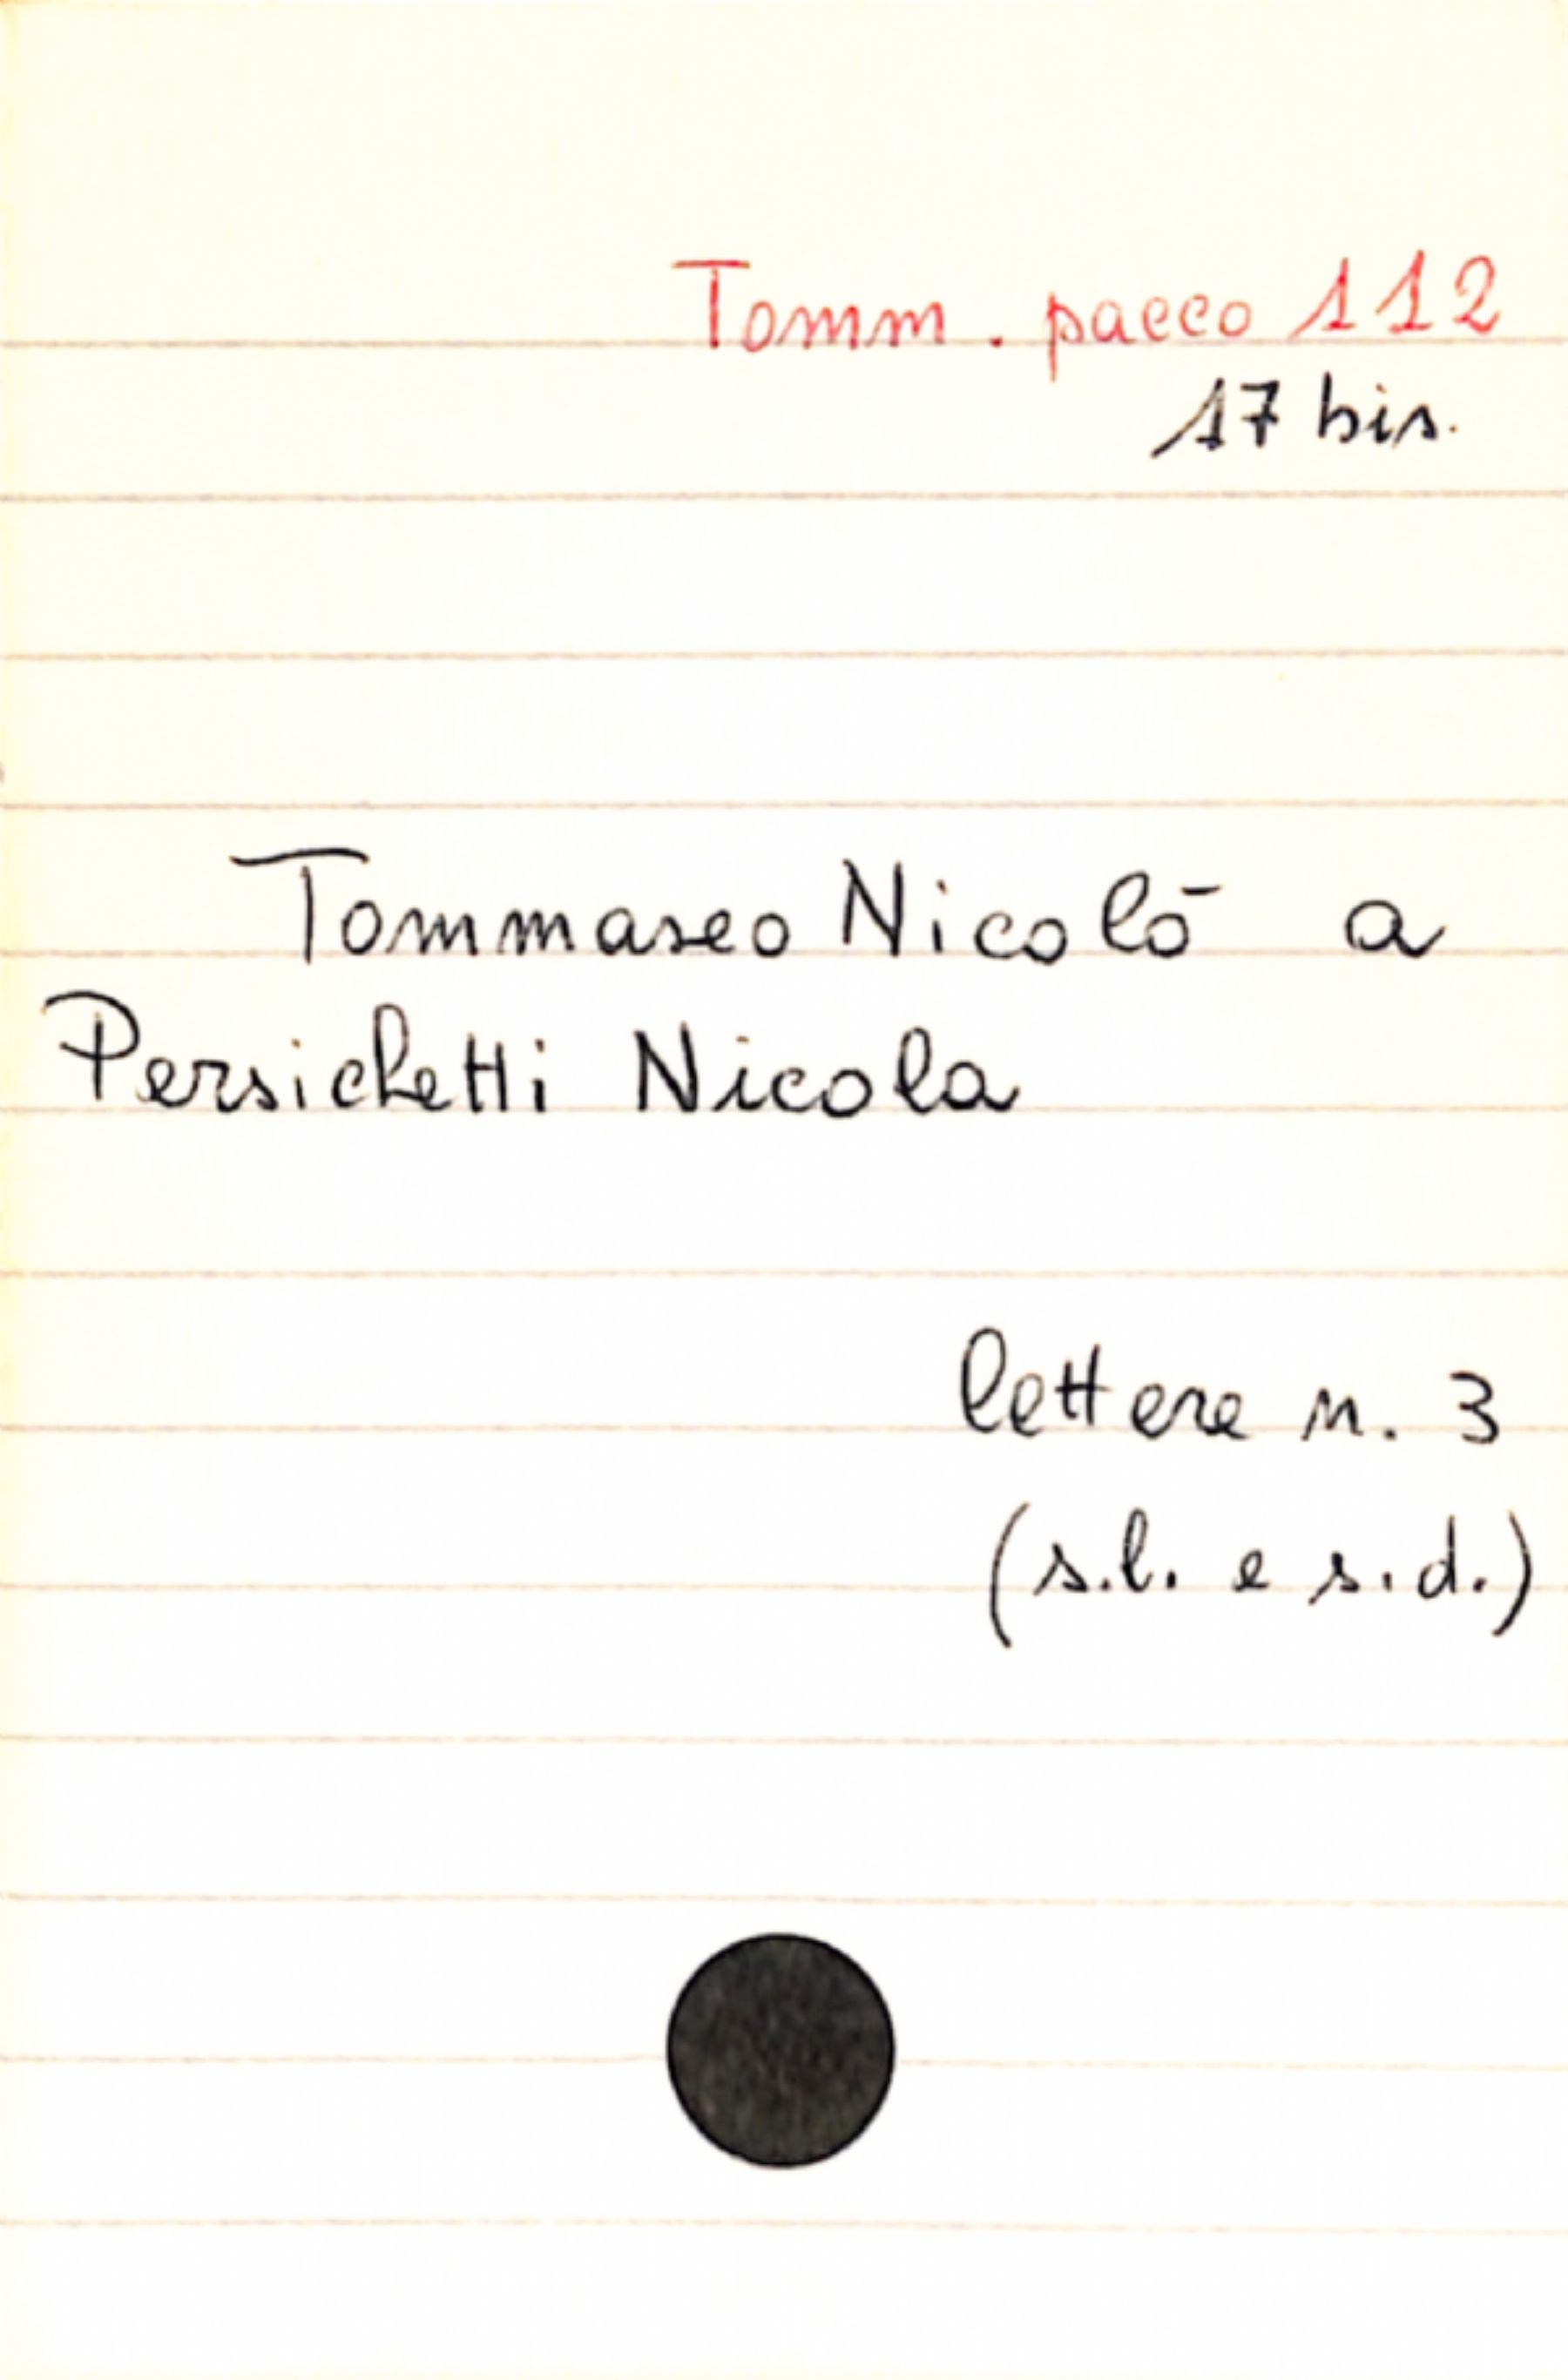 Tomm. pacco 112
17 bis.
Tommaseo Nicolò a
Persichetti Nicola
lettere n. 3
(s.l. e s.d.)